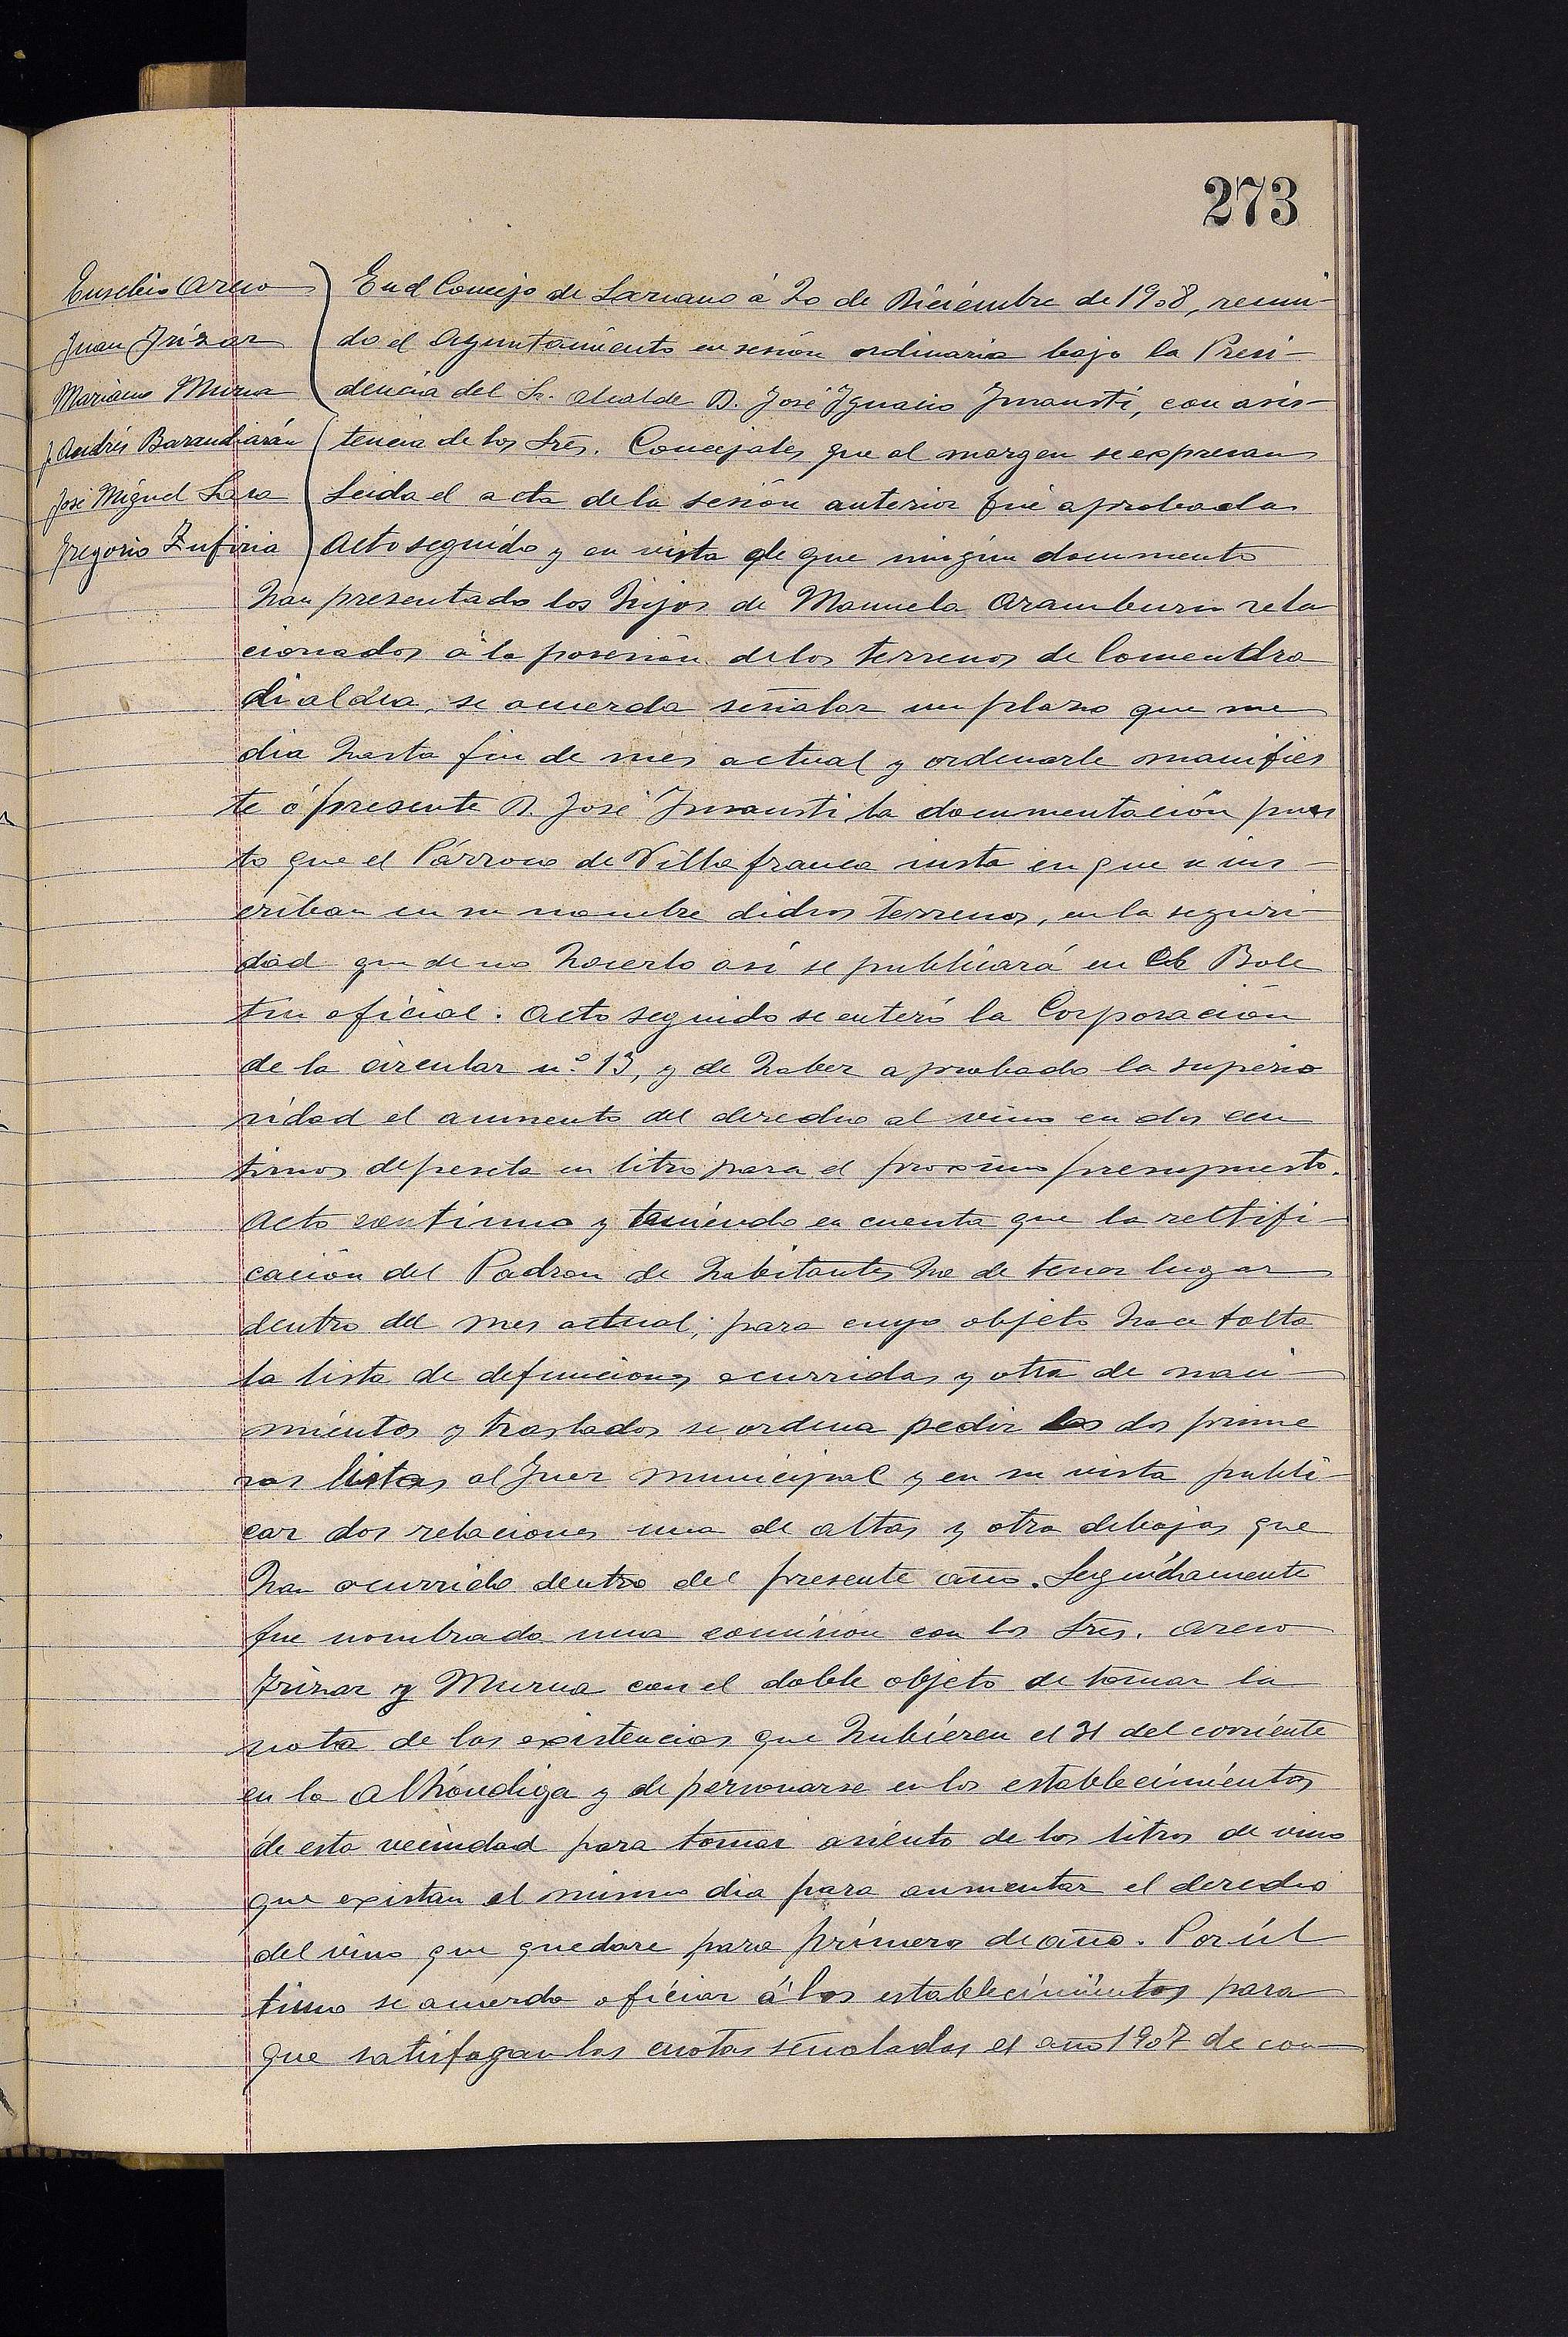 273
Eusebio Arcio
Juan Irizar
Mariano Murua
J. Andrés Barandiarán
José Miguel Lasa
Gregorio Zufiria
En el Concejo de Lazcano á 20 de Diciembre de 1908, reuni-
do el Ayuntamiento en sesión ordinaria bajo la Presi-
dencia del Sr. Alcalde D. José Ygnacio Insausti, con asis-
tencia de los Sres. Concejales que al margen se expresan
Leida el acta de la sesión anterior fué aprobada
Acto seguido y en vista de que ningún documento
han presentado los hijos de Manuela Aramburu rela
cionados á la posesión de los terrenos de
se acuerda señalar un plazo que me
dia hasta fin de mes actual y ordenarle manifies
te ó presente D. José Insausti la documentación pues
to que el Párroco de Villafranca insta en que se ins-
criban en su nombre dichos terrenos, en la seguri-
dad que de no hacerlo así se publicará en el Bole
tin oficial. Acto seguido se enteró la Corporación
de la circular n.º 13, y de haber aprobado la superio
ridad el aumento del derecho al vino en dos cen
timos de peseta en litro para el proximo presupuesto.
Acto continuo y teniendo en cuenta que la rectifi-
cación del Padron de habitantes ha de tener lugar
dentro del mes actual; para cuyo objeto hace falta
la lista de defunciones ocurridas y otra de naci-
mientos y traslados se ordena pedir las dos prime
ras listas al Juez municipal y en su vista publi-
car dos relaciones una de altas y otra de bajas que
han ocurrido dentro del presente año. Seguidamente
fue nombrada una comisión con los Sres. Arcio
Irizar y Murua con el doble objeto de tomar la
nota de las existencias que hubieren el 31 del corriente
en la Alhóndiga y de personarse en los establecimientos
de esta vecindad para tomar asiento de los litros de vino
que existan el mismo dia para aumentar el derecho
del vino que quedare para primero de año. Por úl
timo se acuerda oficiar á los establecimientos para
que satisfagan las cuotas señaladas el año 1907 de con